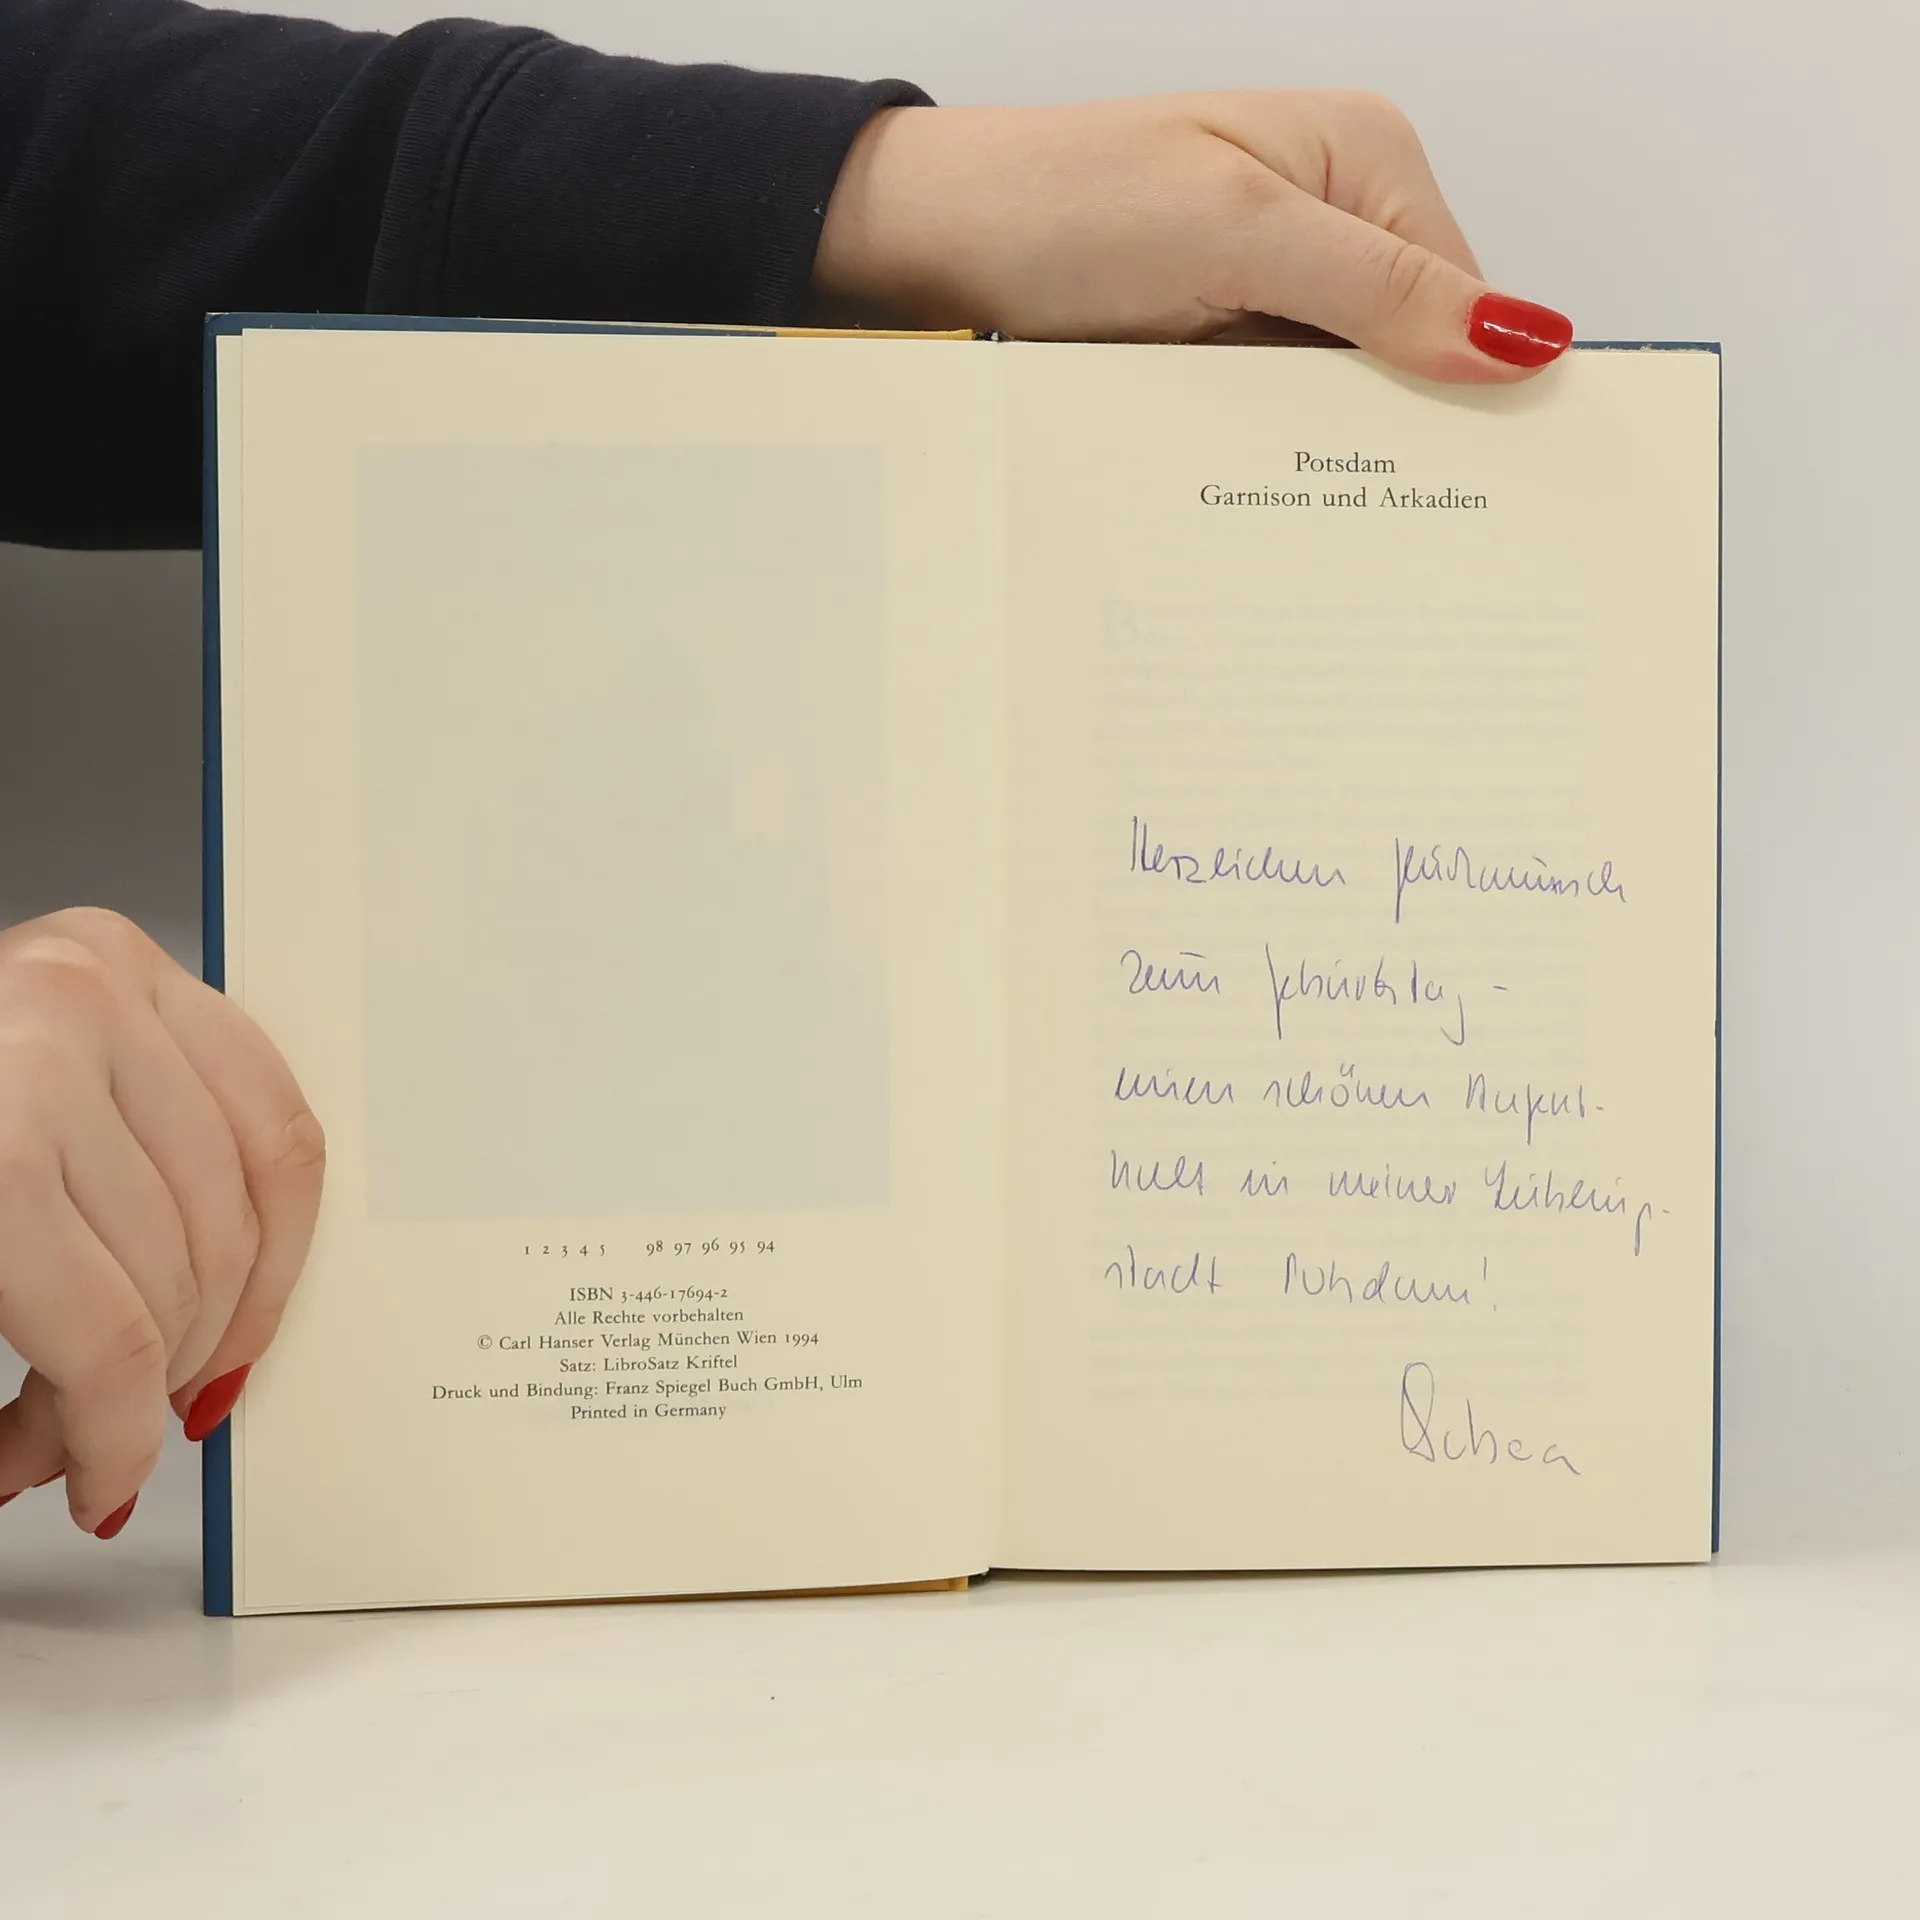 1 2 3 4 5 98 97 96 95 94
ISBN 3-446-17694-2
Alle Rechte vorbehalten
© Carl Hanser Verlag München Wien 1994
Satz: LibroSatz Kriftel
Druck und Bindung: Franz Spiegel Buch GmbH, Ulm
Printed in Germany
Potsdam
Garnison und Arkadien
Herzlichen Glückwunsch
zum Geburtstag -
einen schönen Aufent-
halt in meiner Lieblings-
stadt Potsdam!